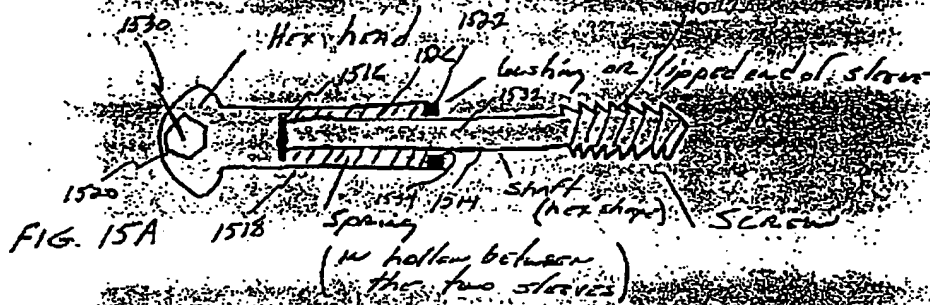 1530
Hex head
1522
1516
bushing or lipped end of sleeve
1532
1520
1518
1534
1514
shaft
(hex shape)
SCREW
FIG. 15A
spring
(in hollow between
the two sleeves)